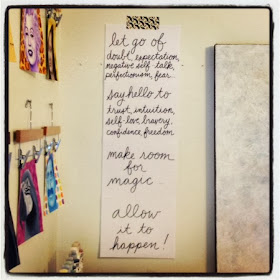 let go of
doubt, expectation,
negative self talk,
perfectionism, fear.
say hello to
trust, intuition,
self-love, bravery,
confidence, freedom.
make room
for
magic
allow
it to
happen!